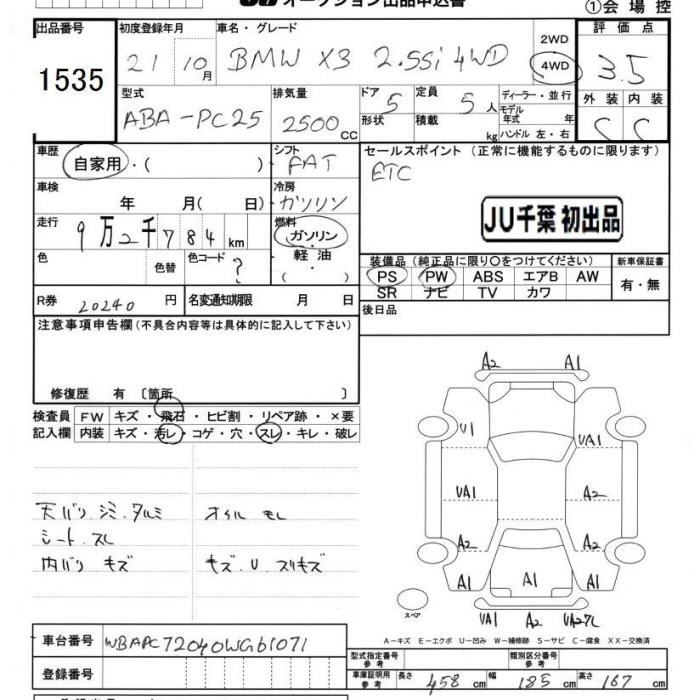 オークション出品申込書
①会場控
出品番号
1535
初度登録年月
21 10月
車名・グレード
BMW X3 2.5Si 4WD
2WD
4WD
評価点
3.5
外装 内装
C C
型式
ABA-PC25
排気量
2500CC
ドア 5
形状
定員 5人
積載 kg
ディーラー・並行
モデル年式 年
ハンドル 左・右
車歴
自家用・( )
シフト
FAT
車検
年 月( 日)
冷房
ガソリン
走行
9万2千784km
燃料
ガソリン
軽油
( )
色
色替
色コード ?
R券 20240 円
名変通知期限 月 日
セールスポイント (正常に機能するものに限ります)
ETC
JU千葉 初出品
装備品 (純正品に限り○をつけてください)
PS PW ABS エアB AW
SR ナビ TV カワ
新車保証書
有・無
後日品
注意事項申告欄(不具合内容等は具体的に記入して下さい)
修復歴 有 〔箇所 〕
検査員 FW キズ・飛石・ヒビ割・リペア跡・×要
記入欄 内装 キズ・汚レ・コゲ・穴・スレ・キレ・破レ
天バリ.シミ.タルミ
シート.スレ
内バリ.キズ
オイル モレ
キズ.U.スリキズ
A2 A1
U1 UA1
UA1 A2
A2 A2
A1 A1 A1
UA1 A2
スペア
A-キズ E-エクボ U-凹み W-補修跡 S-サビ C-腐食 XX-交換済
車台番号 WBAPC72040WG61071
登録番号
型式指定番号 参考
類別区分番号 参考
車庫証明用 参考 長さ 458cm 幅 185cm 高さ 167cm